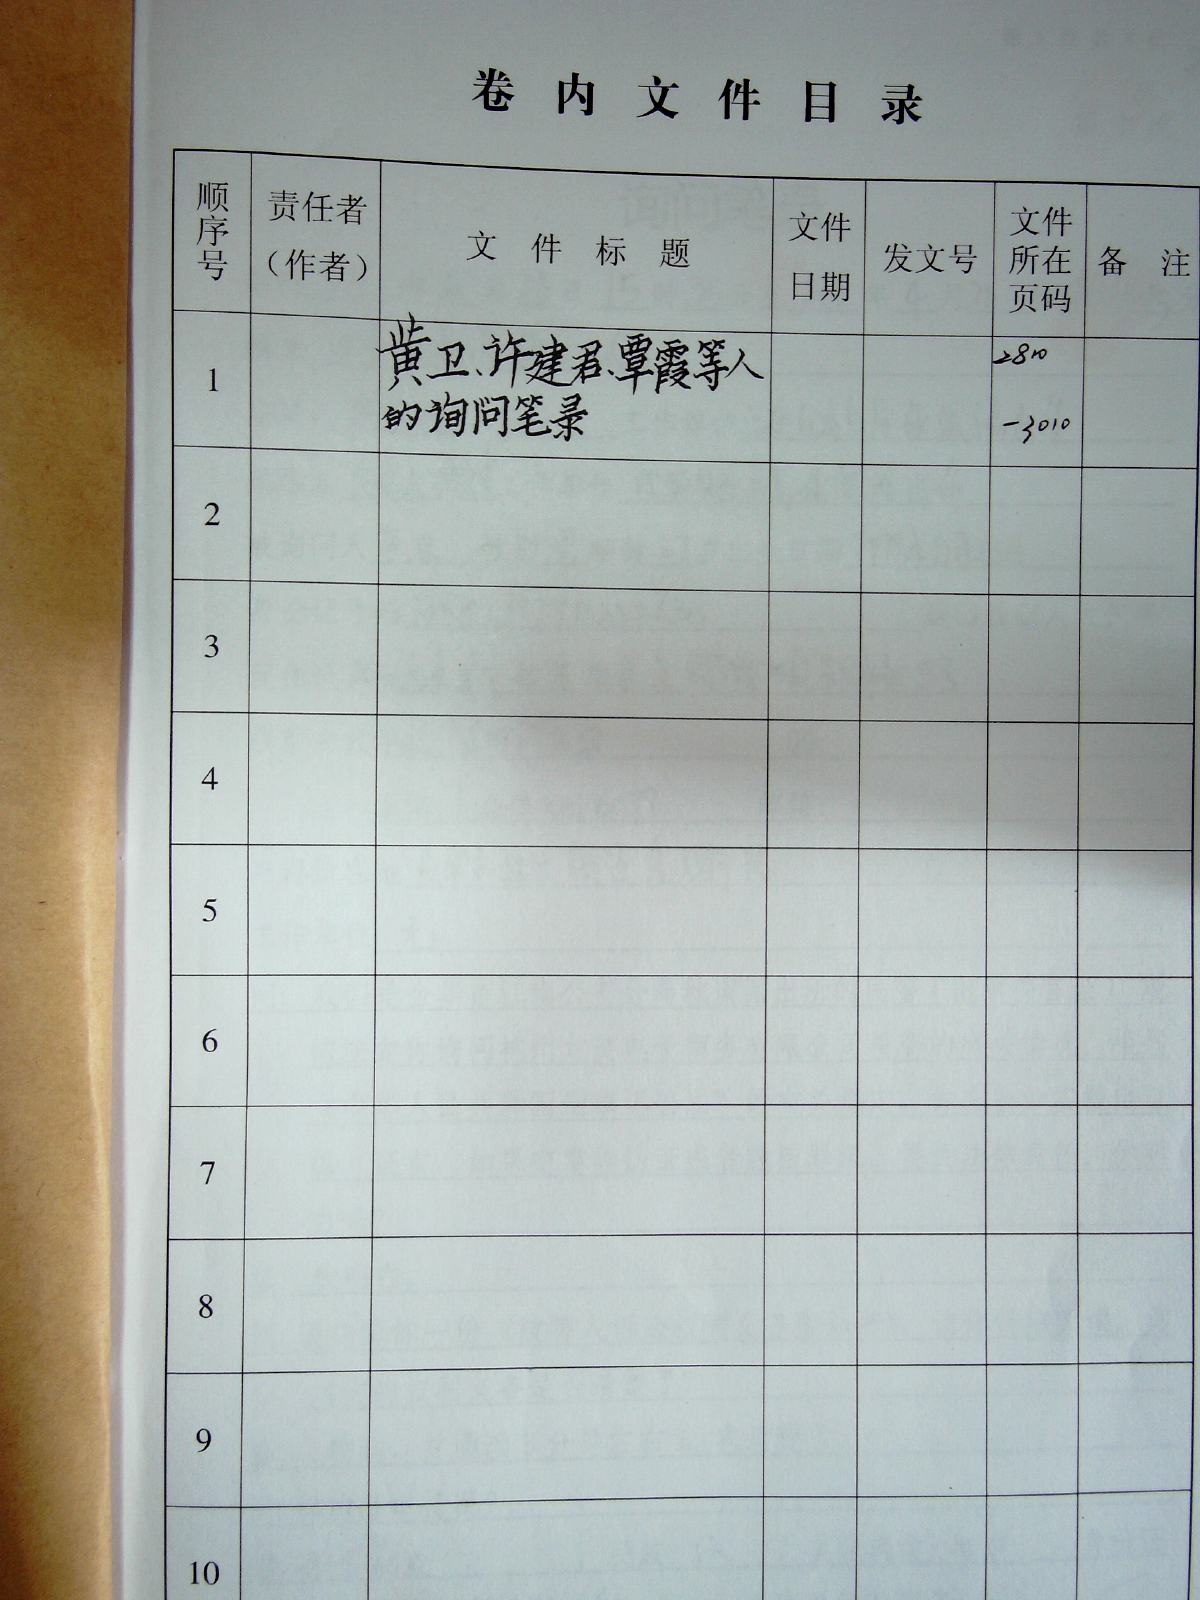 卷内文件目录
顺序号 责任者（作者） 文件标题 文件日期 发文号 文件所在页码 备注
1 黄卫、许建君、覃霞等人 2810
的询问笔录 -3010
2
3
4
5
6
7
8
9
10